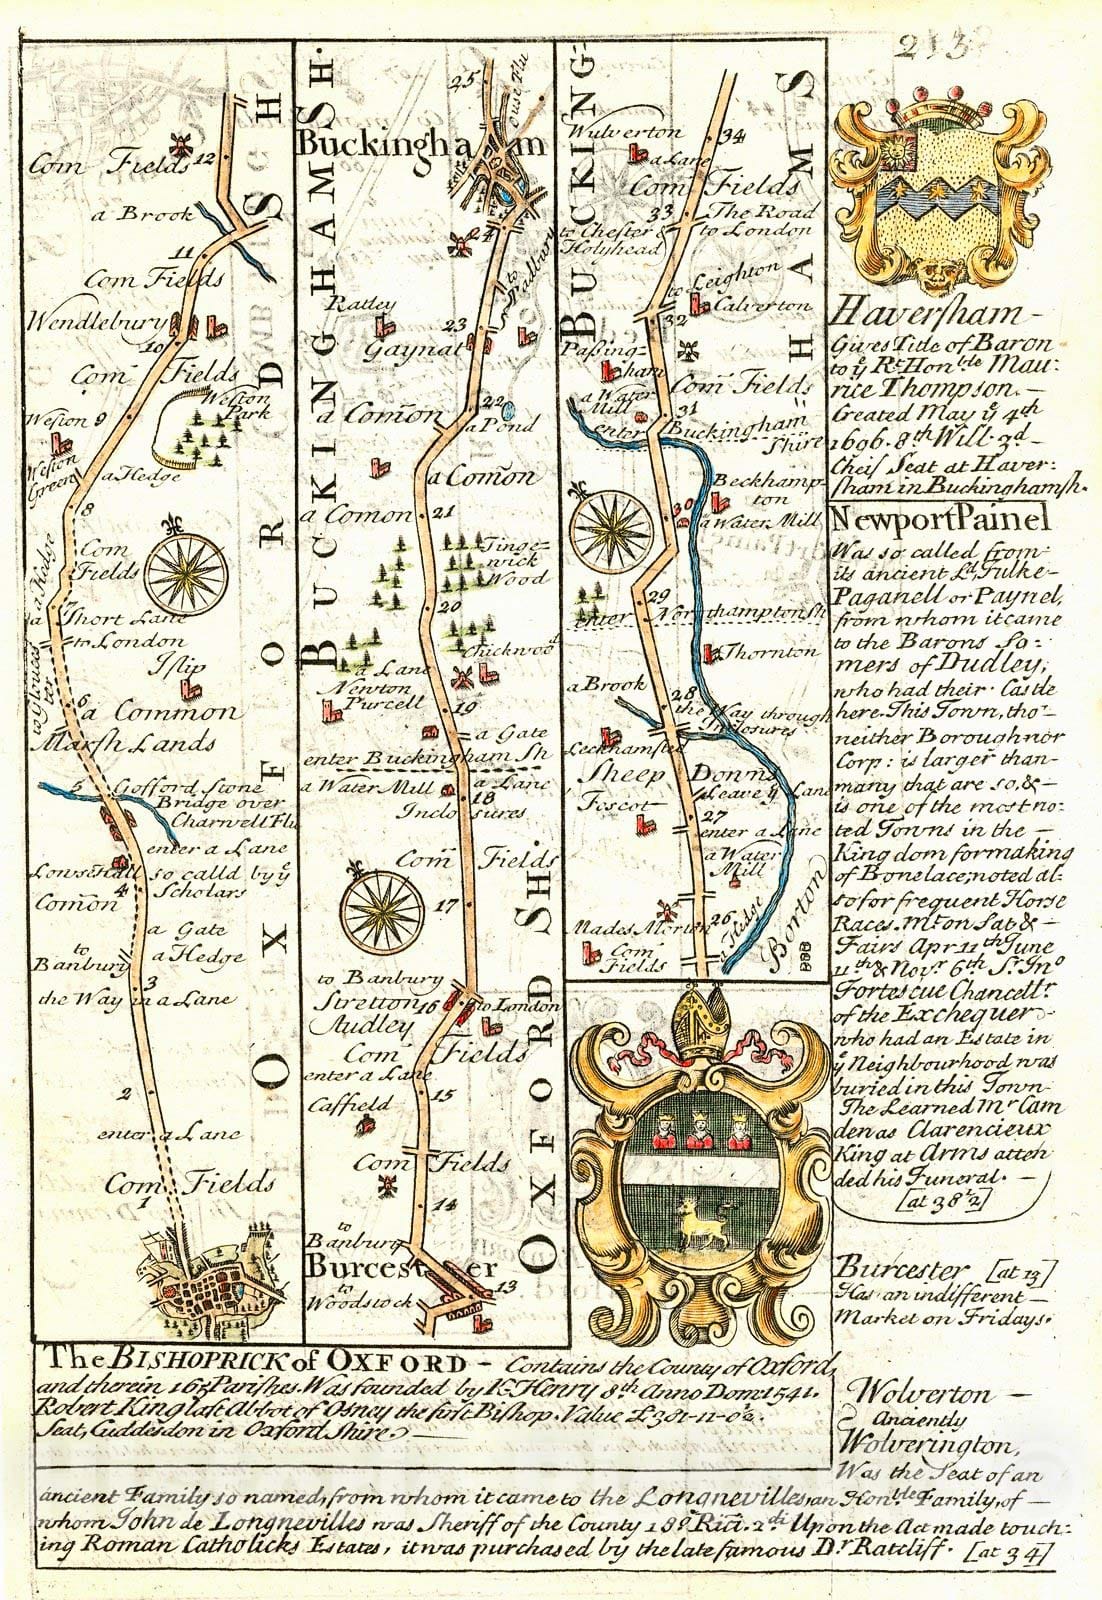 213
OXFORD SH
Com Fields
12
a Brook
11
Com Fields
Wendlebury
10
Com Fields
Weston Park
Weston 9
Weston Green
a Hedge
8
Com Fields
a Hedge
7
Short Lane
to London
Islip
6
a Common
Marsh Lands
5
Gofford Stone
Bridge over
Charwell Flu
enter a Lane
so calld by ye
Scholars
4
Comõn
a Gate
a Hedge
to Banbury
3
the Way in a Lane
2
enter a Lane
Com Fields
1
BUCKINGHAMSH.
25
Ouse Flu
Buckingham
24
to Padbury
Ratley
23
Gaynat
22
a Comõn
a Pond
a Comõn
a Comon
21
Tinge-
wick
Wood
20
Chickwood
a Lane
Newton
Purcell
19
a Gate
enter Buckingham Sh
a Water Mill
a Lane
18
Inclosures
Com Fields
17
OXFORD SH
to Banbury
Stretton
16
to London
Audley
Com Fields
enter a Lane
15
Caffield
Com Fields
14
to Banbury
Burcester
to Woodstock
13
BUCKINGHAMS
Wulverton
34
a Lane
Com Fields
33
The Road
to London
to Chester &
Holyhead
to Leighton
Calverton
32
Passing-
ham
Com Fields
a Water
Mill
31
enter Buckingham
Shire
Beckhamp-
ton
30
a Water Mill
29
enter Northamptonsh
Thornton
a Brook
28
the Way through
Inclosures
Leckhamsted
Sheep Downs
Leave ye Lane
Foscot
27
enter a Lane
a Water
Mill
Mades Morton
26
a Hedge
Com
Fields
Borton
Haversham-
Gives Title of Baron
to ye Rt. Honble Mau:
rice Thompson.-
Created May ye 4th
1696. 8th Will. 3d-
Cheif Seat at Haver:
sham in Buckinghamsh.
Newport Painel
Was so called from
its ancient Ld. Fulke-
Paganell or Paynel,
from whom it came
to the Barons So:
mers of Dudley,
who had their Castle
here. This Town, tho'-
neither Borough nor
Corp: is larger than-
many that are so, &-
is one of the most no:
ted Towns in the-
Kingdom for making
of Bonelace; noted al:
so for frequent Horse
Races. Mt. on Sat &-
Fairs Apr 11th June
11th & Novr 6th Sr. Jno
Fortescue Chancellr
of the Exchequer-
who had an Estate in
ye Neighbourhood was
buried in this Town
The Learned Mr Cam
den as Clarencieux
King at Arms atten
ded his Funeral.-
[at 38½]
Burcester [at 13]
Has an indifferent-
Market on Fridays.
The BISHOPRICK of OXFORD - Contains the County of Oxford,
and therein Parishes. Was founded by K. Henry 8th Anno Dom: 1541.
Robert King last Abbot of Osney the first Bishop. Value £381-11-0½.
Seat, Cuddesdon in Oxford Shire.
Wolverton-
Anciently
Wolverington,
Was the Seat of an
ancient Family so named, from whom it came to the Longnevilles, an Honble Family, of-
whom John de Longnevilles was Sheriff of the County 18o Rici. 2di Upon the Act made touch:
ing Roman Catholicks Estates, it was purchased by the late famous Dr Ratcliff. [at 34]